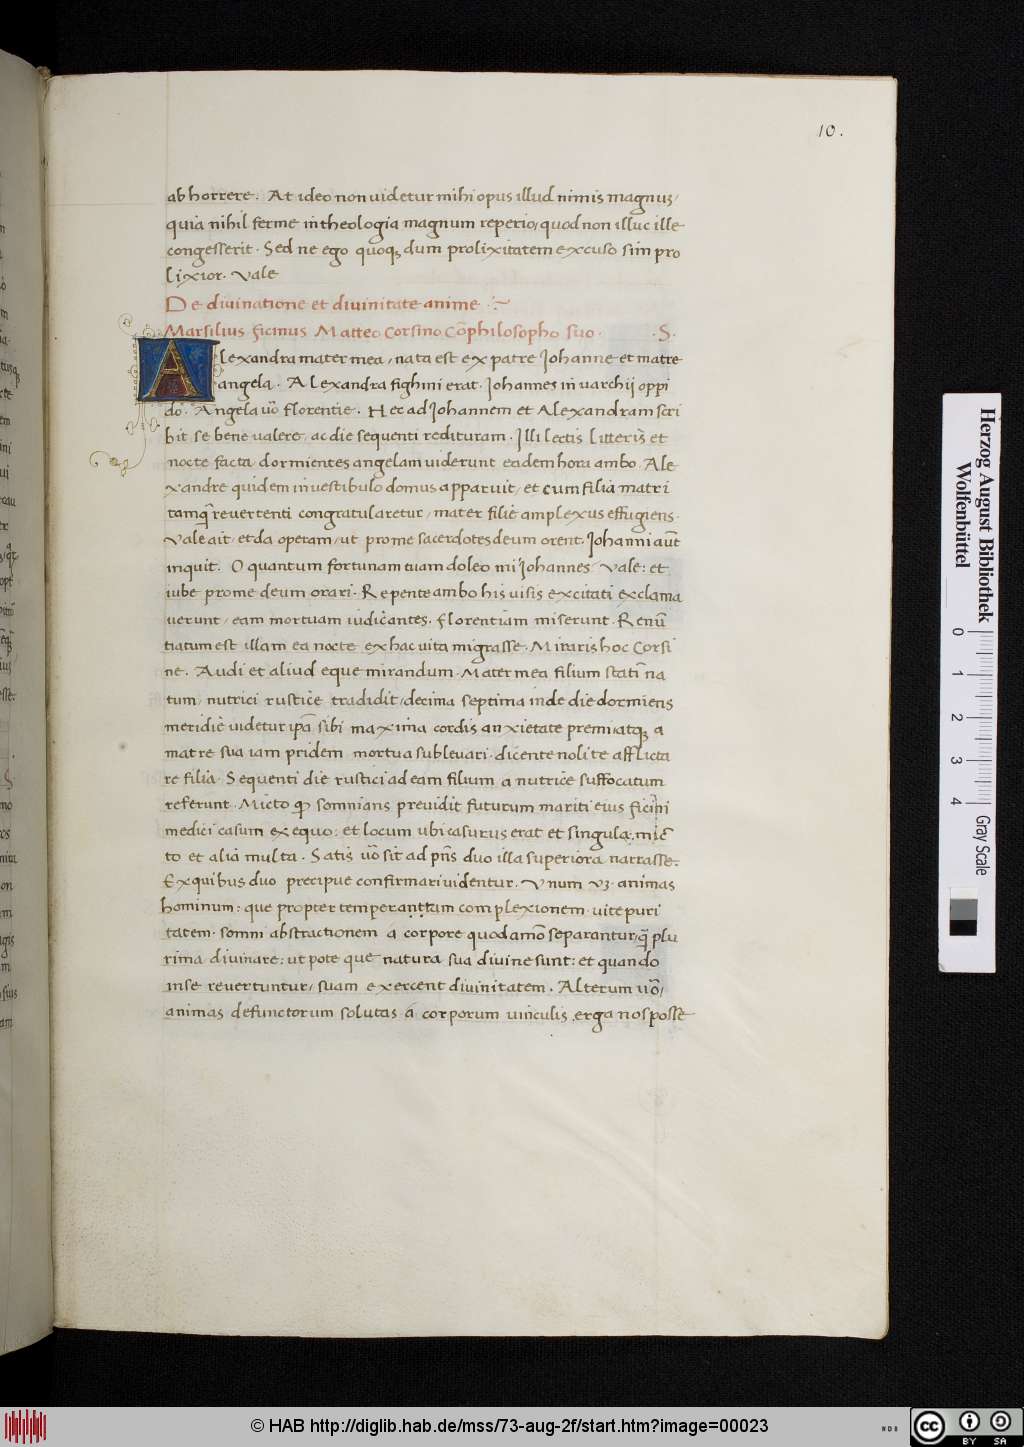 10.
abhorrere. At ideo non uidetur mihi opus illud nimis magnuꝫ,
quia nihil ferme in theologia magnum reperio, quod non illuc ille
congesserit. Sed ne ego quoqꝫ dum prolixitatem excuso sim pro
lixior. Vale
De diuinatione et diuinitate anime.
Marsilius ficinus Matteo Corsino Cōphilosopho suo. .S.
Alexandra mater mea, nata est ex patre Iohanne et matre
angela. Alexandra fighini erat. Iohannes in varchij oppi
do. Angela uō florentie. Hec ad Iohannem et Alexandram scri
bit se bene ualere, ac die sequenti redituram. Illi lectis litteris et
nocte facta dormientes angelam uiderunt eadem hora ambo. Ale
xandre quidem in uestibulo domus apparuit, et cum filia matri
tamq̄ reuertenti congratularetur, mater filie amplexus effugiens.
Vale ait, et da operam, ut pro me sacerdotes deum orent. Iohanni aut̄
inquit. O quantum fortunam tuam doleo mi Iohannes Vale: et
iube pro me deum orari. Repente ambo his uisis excitati exclama
uerunt, eam mortuam iudicantes. florentiam miserunt. Renū
tiatum est illam ea nocte ex hac uita migrasse. Miraris hoc Corsi
ne. Audi et aliud eque mirandum. Mater mea filium statī na
tum, nutrici rustice tradidit, decima septima inde die dormiens
meridie uidetur ipā sibi maxima cordis anxietate premi, atqꝫ a
matre sua iam pridem mortua subleuari, dicente noli te afflicta
re filia. Sequenti die rustici ad eam filium a nutrice suffocatum
referunt. Micto ꝙ somnians preuidit futurum mariti eius ficini
medici casum ex equo: et locum ubi casurus erat et singulaꝫ mic̄
to et alia multa. Satis uō sit ad pn̄s duo illa superiora narrasse.
Ex quibus duo precipue confirmari uidentur. Vnum vꝫ. animas
hominum: que propter temperantiam complexionem uite puri
tatem. somni abstractionem a corpore quodamō separantur, q̄ plu
rima diuinare: ut pote que natura sua diuine sunt: et quando
in se reuertuntur, suam exercent diuinitatem. Alterum uō,
animas defunctorum solutas a corporum uinculis erga nos posse
Herzog August Bibliothek
Wolfenbüttel
0 1 2 3 4
Gray Scale
© HAB http://diglib.hab.de/mss/73-aug-2f/start.htm?image=00023
WDB
cc BY SA